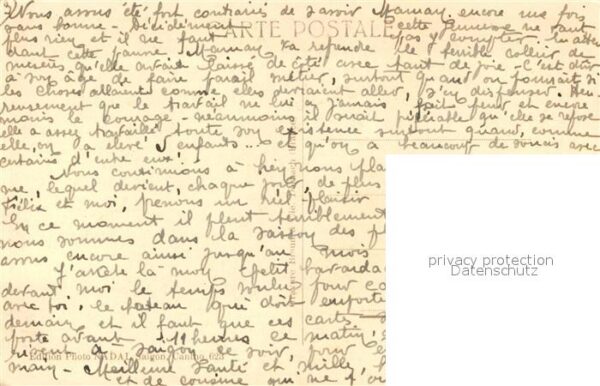 2/ Nous avons été fort contrariés de savoir Maman encore une fois
sans bonne - Décidément cette Guneuse ne vaut
CARTE POSTALE
pas rien et il ne faut pas y compter. En atten-
dant cette pauvre Maman va reprendre le terrible collier de
misères qu'elle avait laissé de côté avec tant de joie - C'est dur
à son âge de faire pareil métier, surtout quand on pourrait si
les choses allaient comme elles devraient aller, s'en dispenser. Heu-
reusement que le travail ne lui a jamais fait peur et encore
moins le courage - néanmoins il serait préférable qu'elle se repose
elle a assez travaillé toute son existence surtout quand, comme
elle, on a élevé 5 enfants... et qu'on a beaucoup de soucis avec
certains d'entre eux!
Nous continuons à bien nous pla
me, lequel devient, chaque jour, de plus
Félix et moi, prenons un réel plaisir
En ce moment il pleut terriblement
nous sommes dans la saison des pl
avons encore ainsi jusqu'au mois
J'arrête là mon petit bavarda
devant moi le temps voulu pour co
avec toi, le bateau qui doit emporte
demain et il faut que ces cartes s
poste avant 11 heures ce matin,
rivent à Saigon ce soir, pour
main - Meilleure santé et mille
et de cousine qui ne
Edition Photo NADAL, Saigon, Canho, 623
privacy protection
Datenschutz